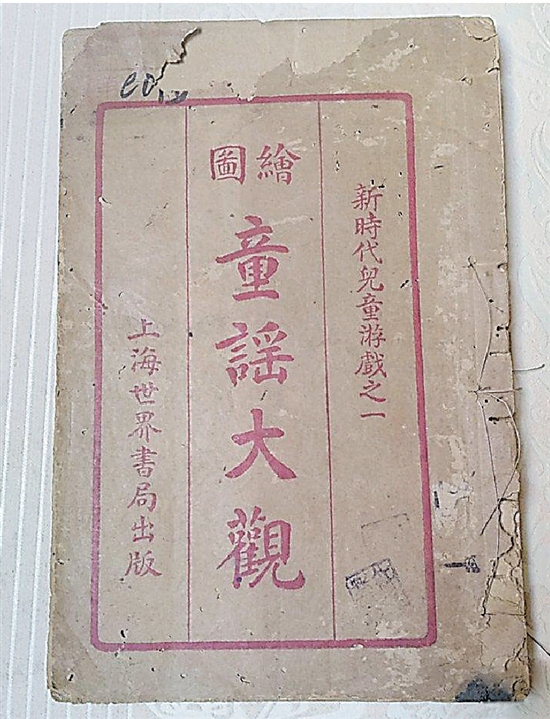 新時代兒童游戲之一
繪圖
童謡大觀
上海世界書局出版